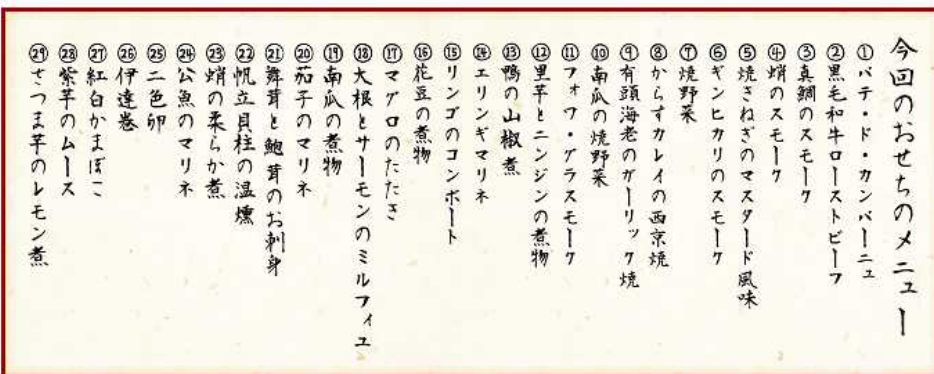 今回のおせちのメニュー
①パテ・ド・カンパーニュ
②黒毛和牛ローストビーフ
③真鯛のスモーク
④蛸のスモーク
⑤焼きねぎのマスタード風味
⑥ギンヒカリのスモーク
⑦焼野菜
⑧からすカレイの西京焼
⑨有頭海老のガーリック焼
⑩南瓜の焼野菜
⑪フォワ・グラスモーク
⑫里芋とニンジンの煮物
⑬鴨の山椒煮
⑭エリンギマリネ
⑮リンゴのコンポート
⑯花豆の煮物
⑰マグロのたたき
⑱大根とサーモンのミルフィユ
⑲南瓜の煮物
⑳茄子のマリネ
㉑舞茸と鮑茸のお刺身
㉒帆立貝柱の温燻
㉓蛸の柔らか煮
㉔公魚のマリネ
㉕二色卵
㉖伊達巻
㉗紅白かまぼこ
㉘紫芋のムース
㉙さつま芋のレモン煮